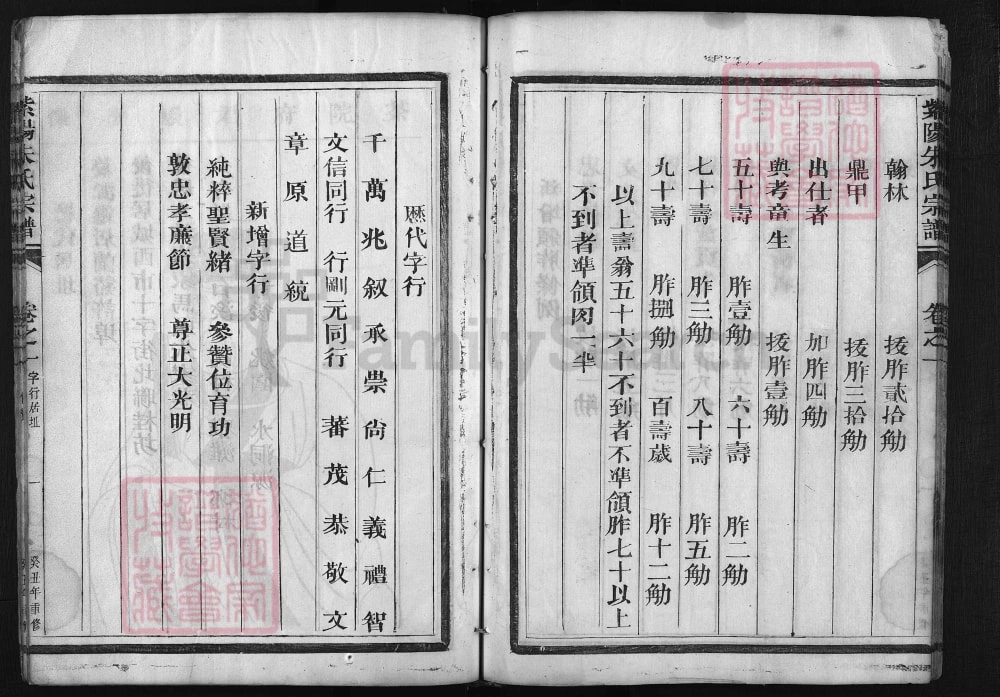 紫陽朱氏宗譜 卷之一
翰林 拨胙貳拾觔
鼎甲 拨胙三拾觔
出仕者 加胙四觔
與考童生 拨胙壹觔
五十壽 胙壹觔 六十壽 胙二觔
七十壽 胙三觔 八十壽 胙五觔
九十壽 胙捌觔 百壽歲 胙十二觔
以上壽翁五十六十不到者不準領胙七十以上
不到者準領肉一半
歷代字行
千萬兆叙承崇尙仁義禮智
文信同行 行剛元同行 蕃茂恭敬文
章原道統
新增字行
純粹聖賢緒 參贊位育功
敦忠孝廉節 尊正大光明
紫陽朱氏宗譜 卷之一 字行居址 一 癸丑年重修
FamilySearch